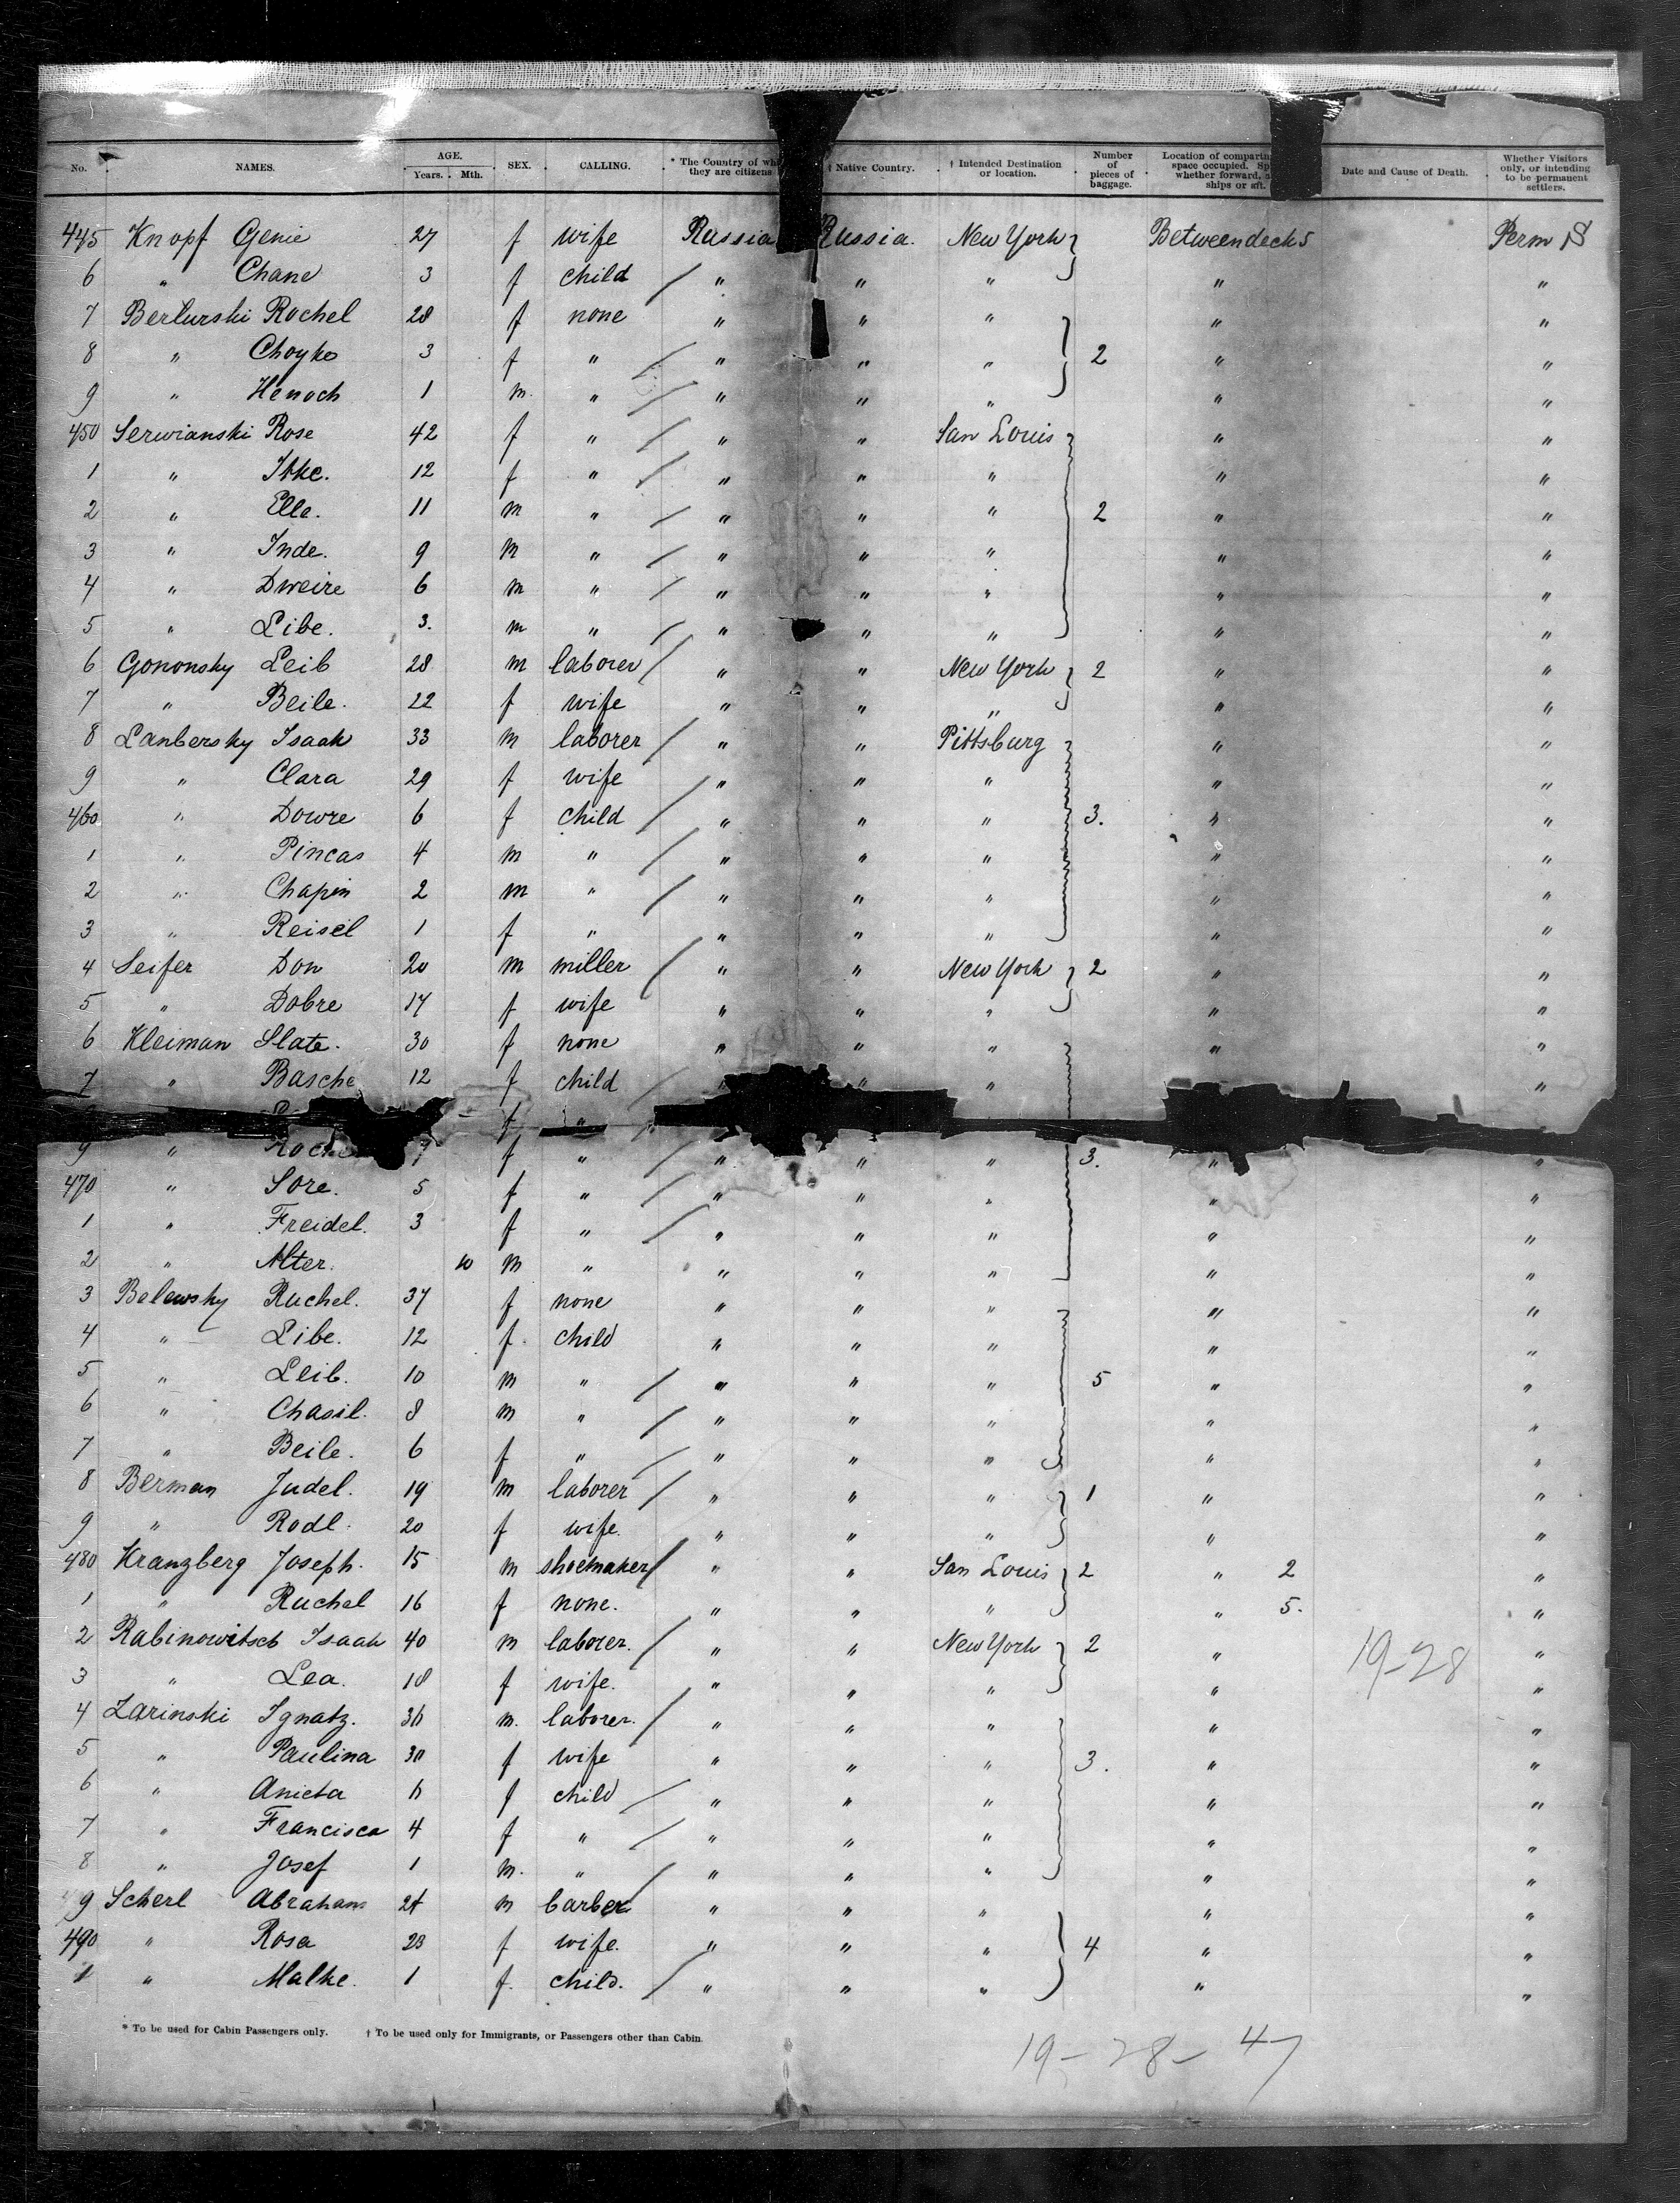 No. NAMES. AGE. Years. Mth. SEX. CALLING. * The Country of wh they are citizens † Native Country. † Intended Destination or location. Number of pieces of baggage. Location of compartm space occupied. Sp whether forward, a ships or aft. Date and Cause of Death. Whether Visitors only, or intending to be permanent settlers.
445 Knopf Genie 27 f wife Russia Russia. New York Betweendecks Perm S
6 " Chane 3 f child / " " " " "
7 Berlurski Rochel 28 f none " " " " "
8 " Choyke 3 f " / " " " 2 " "
9 " Henoch 1 m. " / " " " " "
450 Serwianski Rose 42 f " / " " San Louis " "
1 " Itke. 12 f " / " " " " "
2 " Elle. 11 m " / " " " 2 " "
3 " Inde. 9 m " / " " " " "
4 " Dweire 6 m " / " " " " "
5 " Libe. 3. m " / " " " " "
6 Gononsky Leib 28 m laborer / " " New York 2 " "
7 " Beile. 22 f wife " " " " "
8 Lanbersky Isaak 33 m laborer / " " Pittsburg " "
9 " Clara 29 f wife " " " " "
460 " Dowre 6 f child / " " " 3. " "
1 " Pincas 4 m " / " " " " "
2 " Chapin 2 m " / " " " " "
3 " Reisel 1 f " " " " " "
4 Seifer Don 20 m miller / " " New York 2 " "
5 " Dobre 17 f wife " " " " "
6 Kleiman Slate. 30 f none " " " " "
7 " Basche 12 f child / " " " "
f "
9 " Roche 7 f " / " " " 3. " "
470 " Sore. 5 f " / " " " " "
1 " Freidel. 3 f " / " " " " "
2 " Alter. 10 m " " " " " "
3 Belewsky Ruchel. 37 f none " " " " "
4 " Libe. 12 f. child " " " " "
5 " Leib. 10 m " / " " " 5 " "
6 " Chasil. 8 m " / " " " " "
7 " Beile. 6 f " / " " " " "
8 Berman Judel. 19 m laborer / " " " 1 " "
9 " Rodl. 20 f wife. " " " " "
480 Kranzberg Joseph. 15 m shoemaker / " " San Louis 2 " 2 "
1 " Ruchel 16 f none. " " " " 5. "
2 Rabinowitsch Isaak 40 m laborer. / " " New York 2 " 19-28 "
3 " Lea. 18 f wife. " " " " "
4 Zarinski Ignatz. 36 m. laborer. / " " " " "
5 " Paulina 30 f wife " " " 3. " "
6 " Anieta 6 f child / " " " " "
7 " Francisca 4 f " / " " " " "
8 " Josef 1 m. " / " " " " "
9 Scherl Abraham 24 m barber / " " " " "
490 " Rosa 23 f wife. " " " 4 " "
1 " Malke. 1 f. child. / " " " " "
* To be used for Cabin Passengers only. † To be used only for Immigrants, or Passengers other than Cabin.
19-28-47